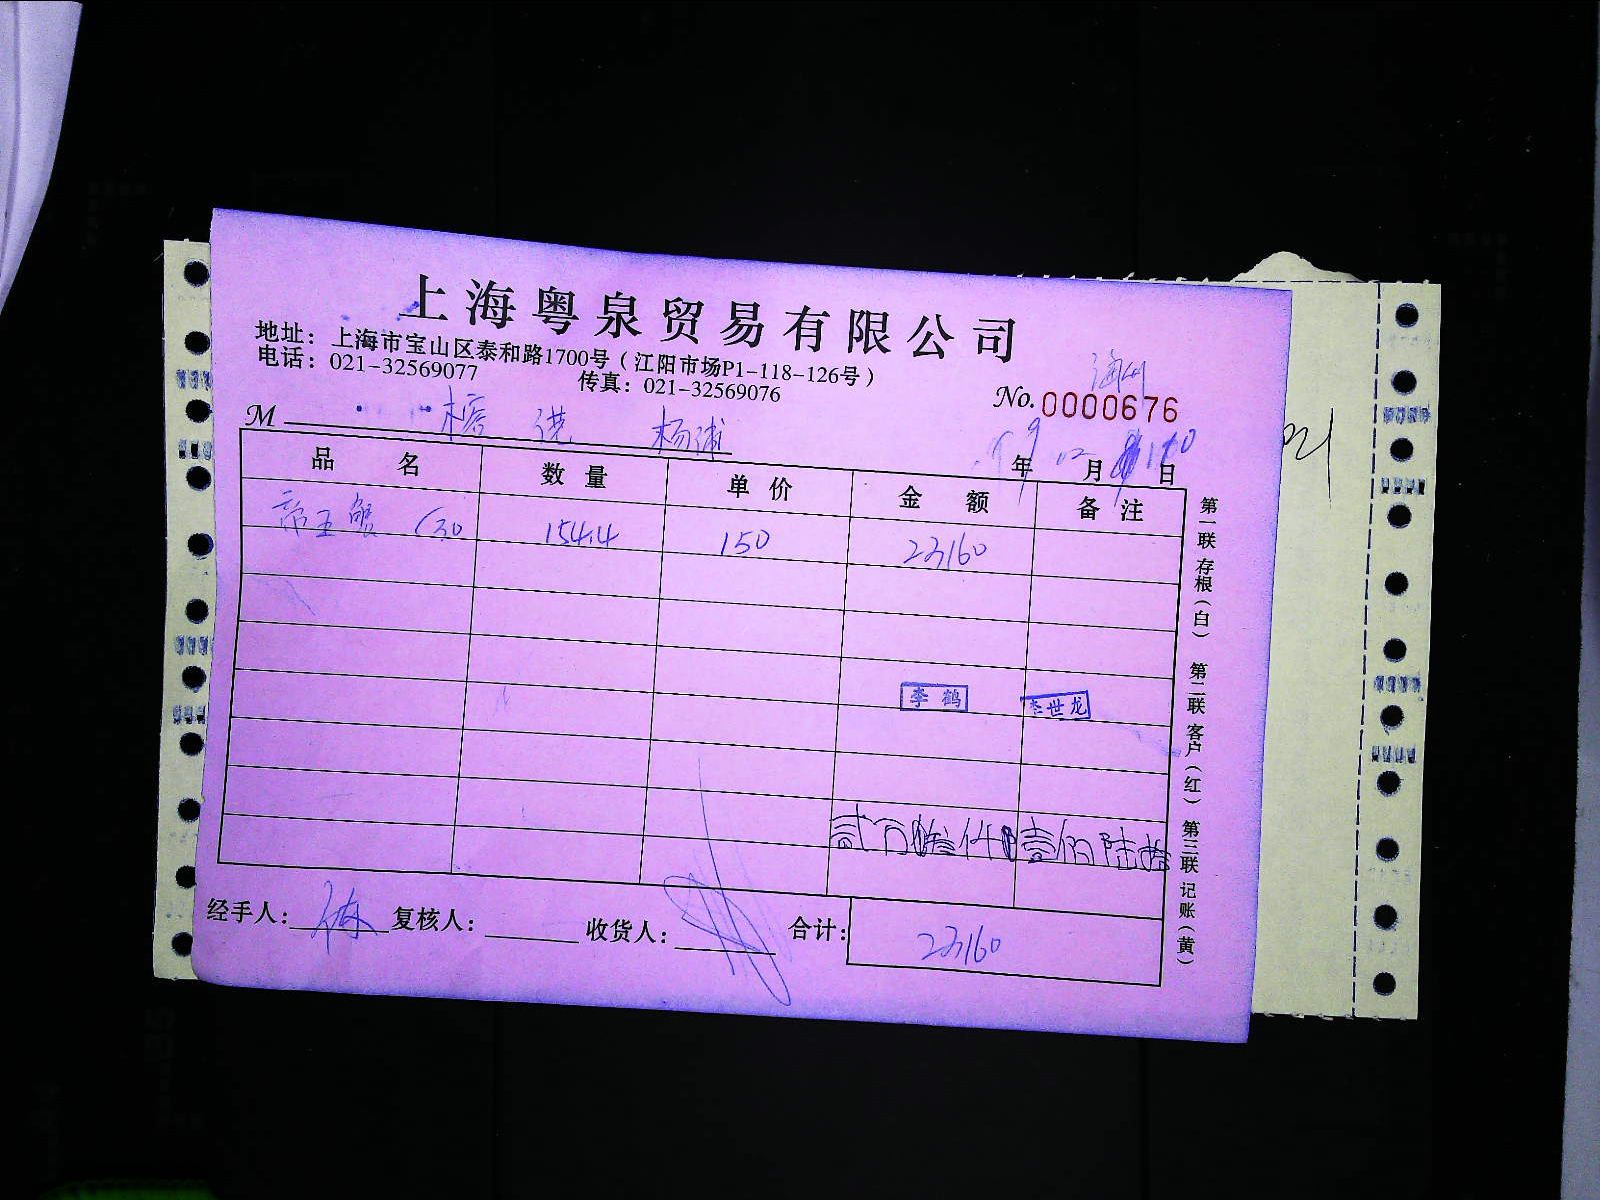 上海粤泉贸易有限公司
地址：上海市宝山区泰和路1700号（江阳市场P1-118-126号）
电话：021-32569077 传真：021-32569076
No. 0000676
M 杨浦
年 12 月 日
品名 数量 单价 金额 备注
帝王蟹 154.4 150 23160
李鹤 李世龙
贰万叁仟壹佰陆拾
经手人： 复核人： 收货人： 合计：23160
第一联 存根（白） 第二联 客户（红） 第三联 记账（黄）